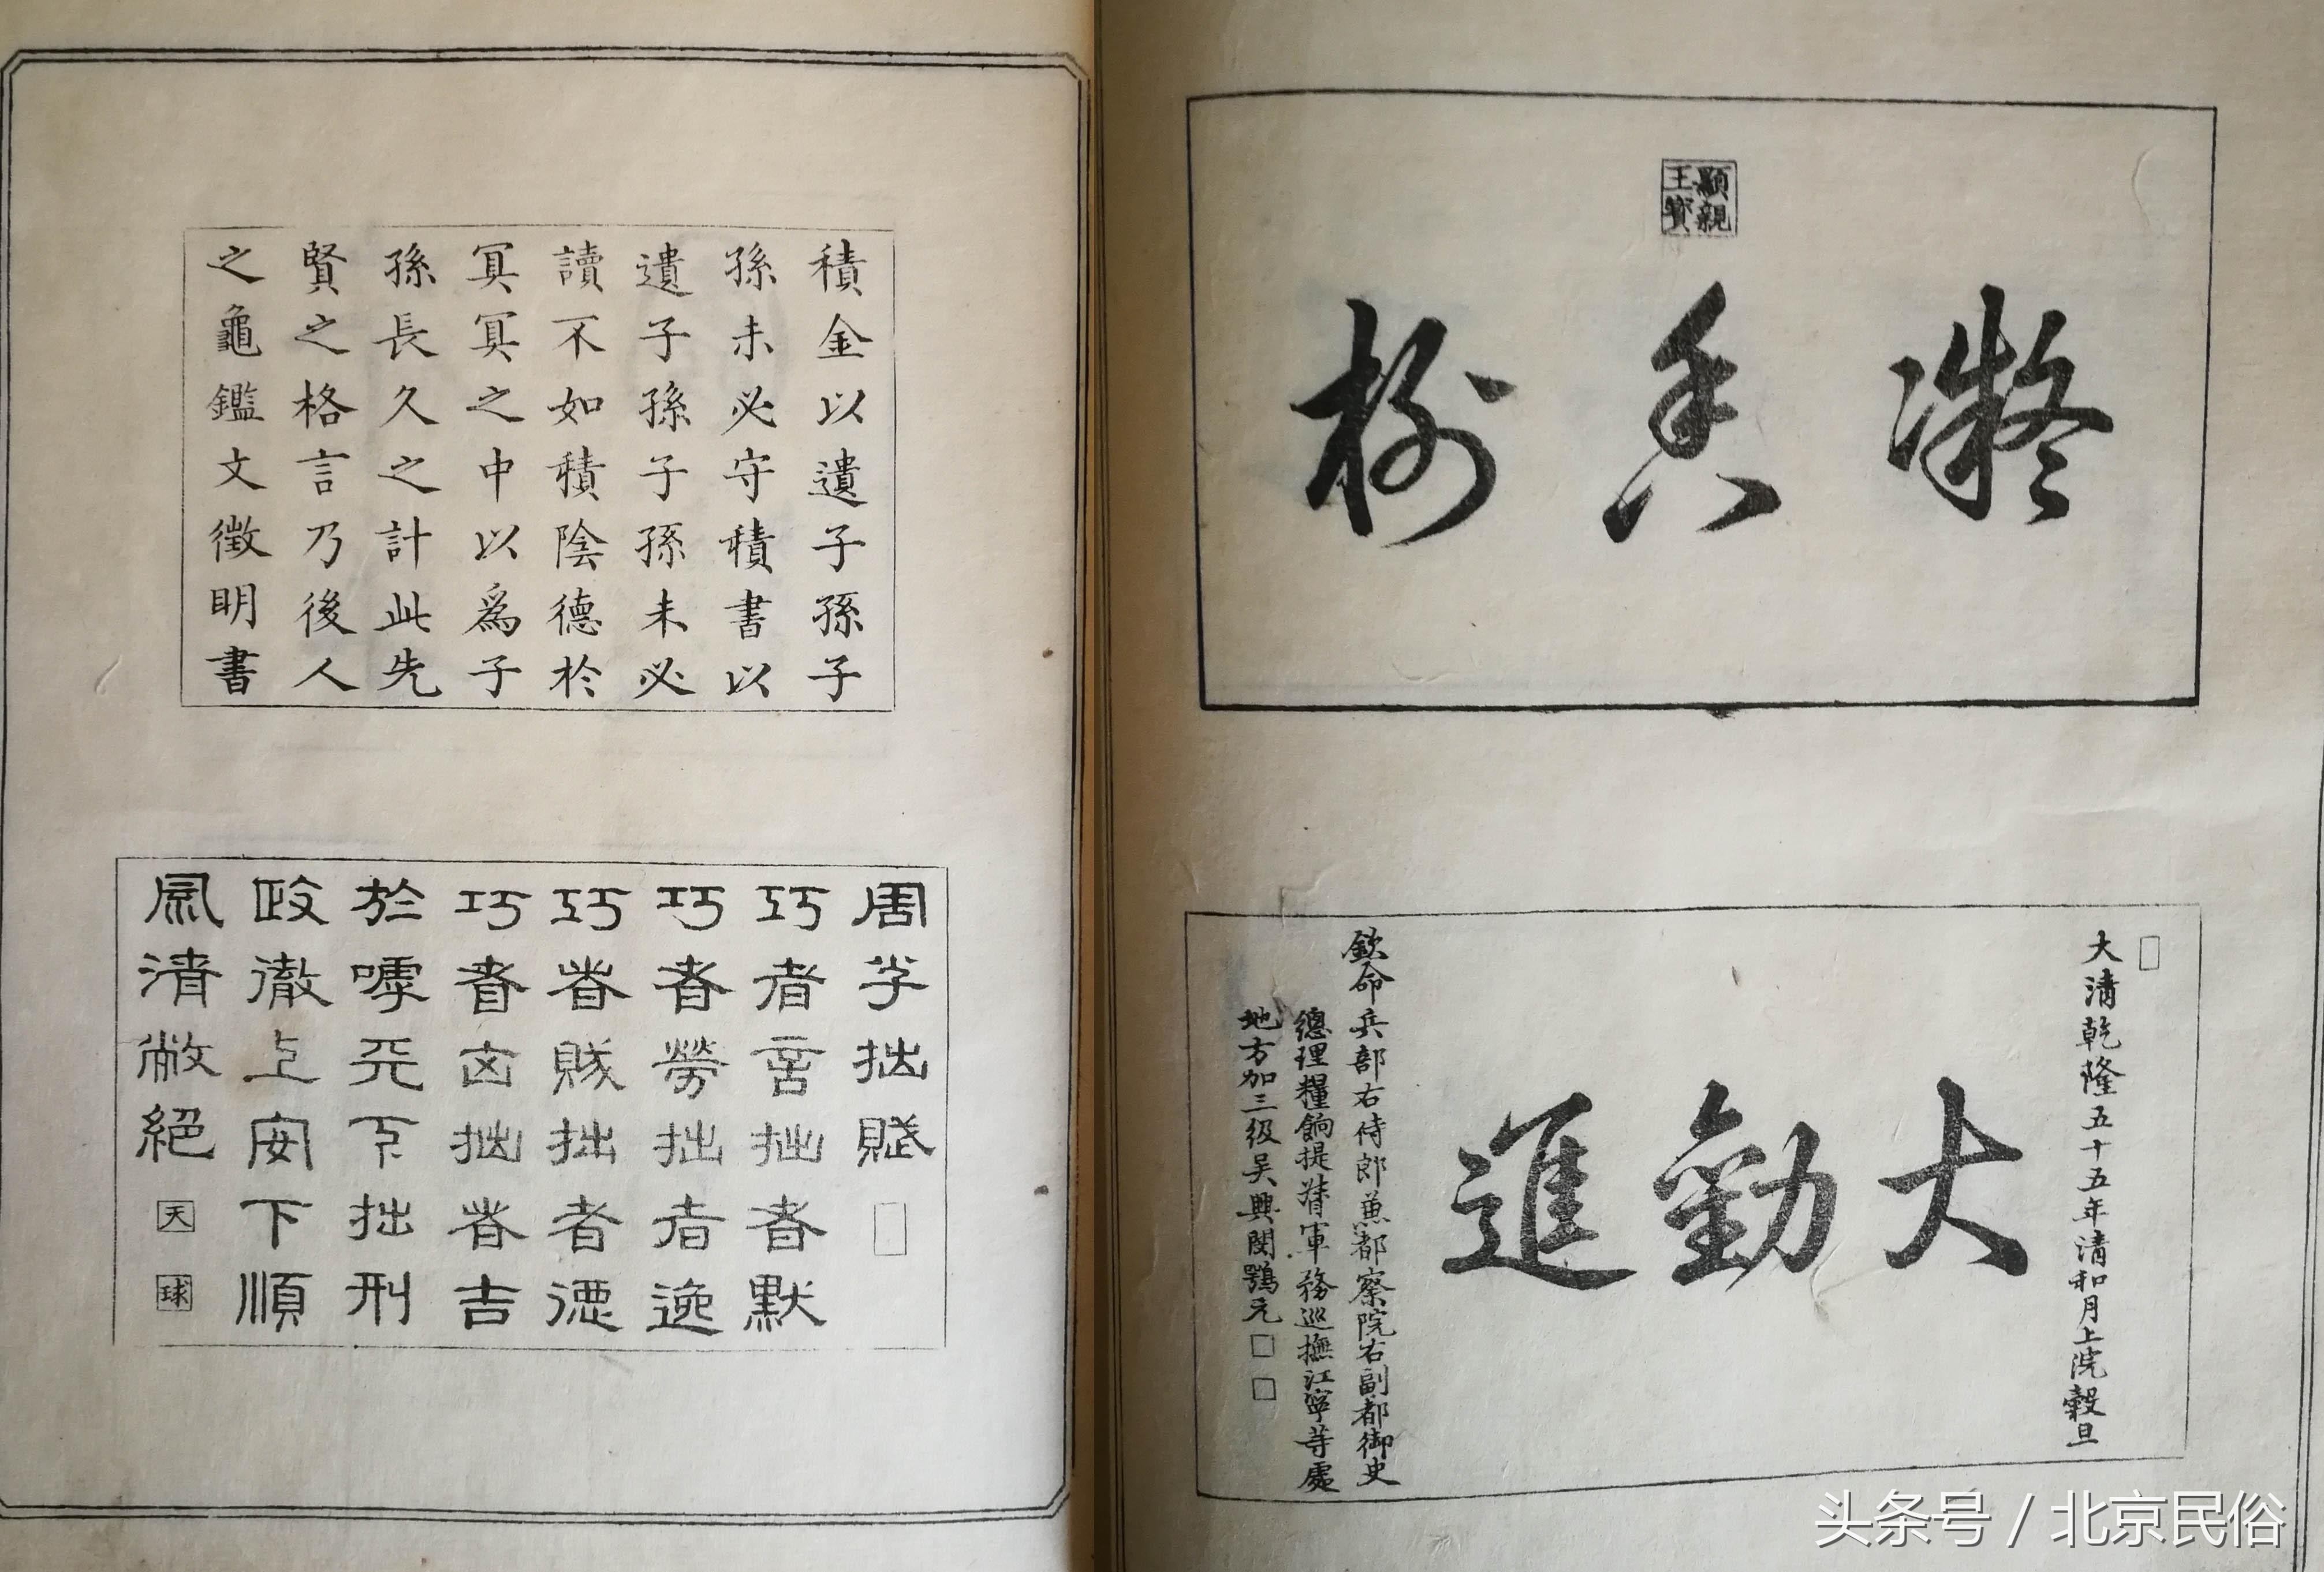 顯親王寶
凝香榭
大清乾隆五十五年清和月上浣穀旦
大勸進
欽命兵部右侍郎兼都察院右副都御史
總理糧餉提督軍務巡撫江寧等處
地方加三級吴興閔鶚元
積金以遺子孫子
孫未必守積書以
遺子孫子孫未必
讀不如積陰德於
冥冥之中以爲子
孫長久之計此先
賢之格言乃後人
之龜鑑文徵明書
周子拙賦
巧者言拙者默
巧者勞拙者逸
巧者賊拙者德
巧者凶拙者吉
於嘑天下拙刑
政徹上安下順
風清敝絕
天
球
头条号 / 北京民俗